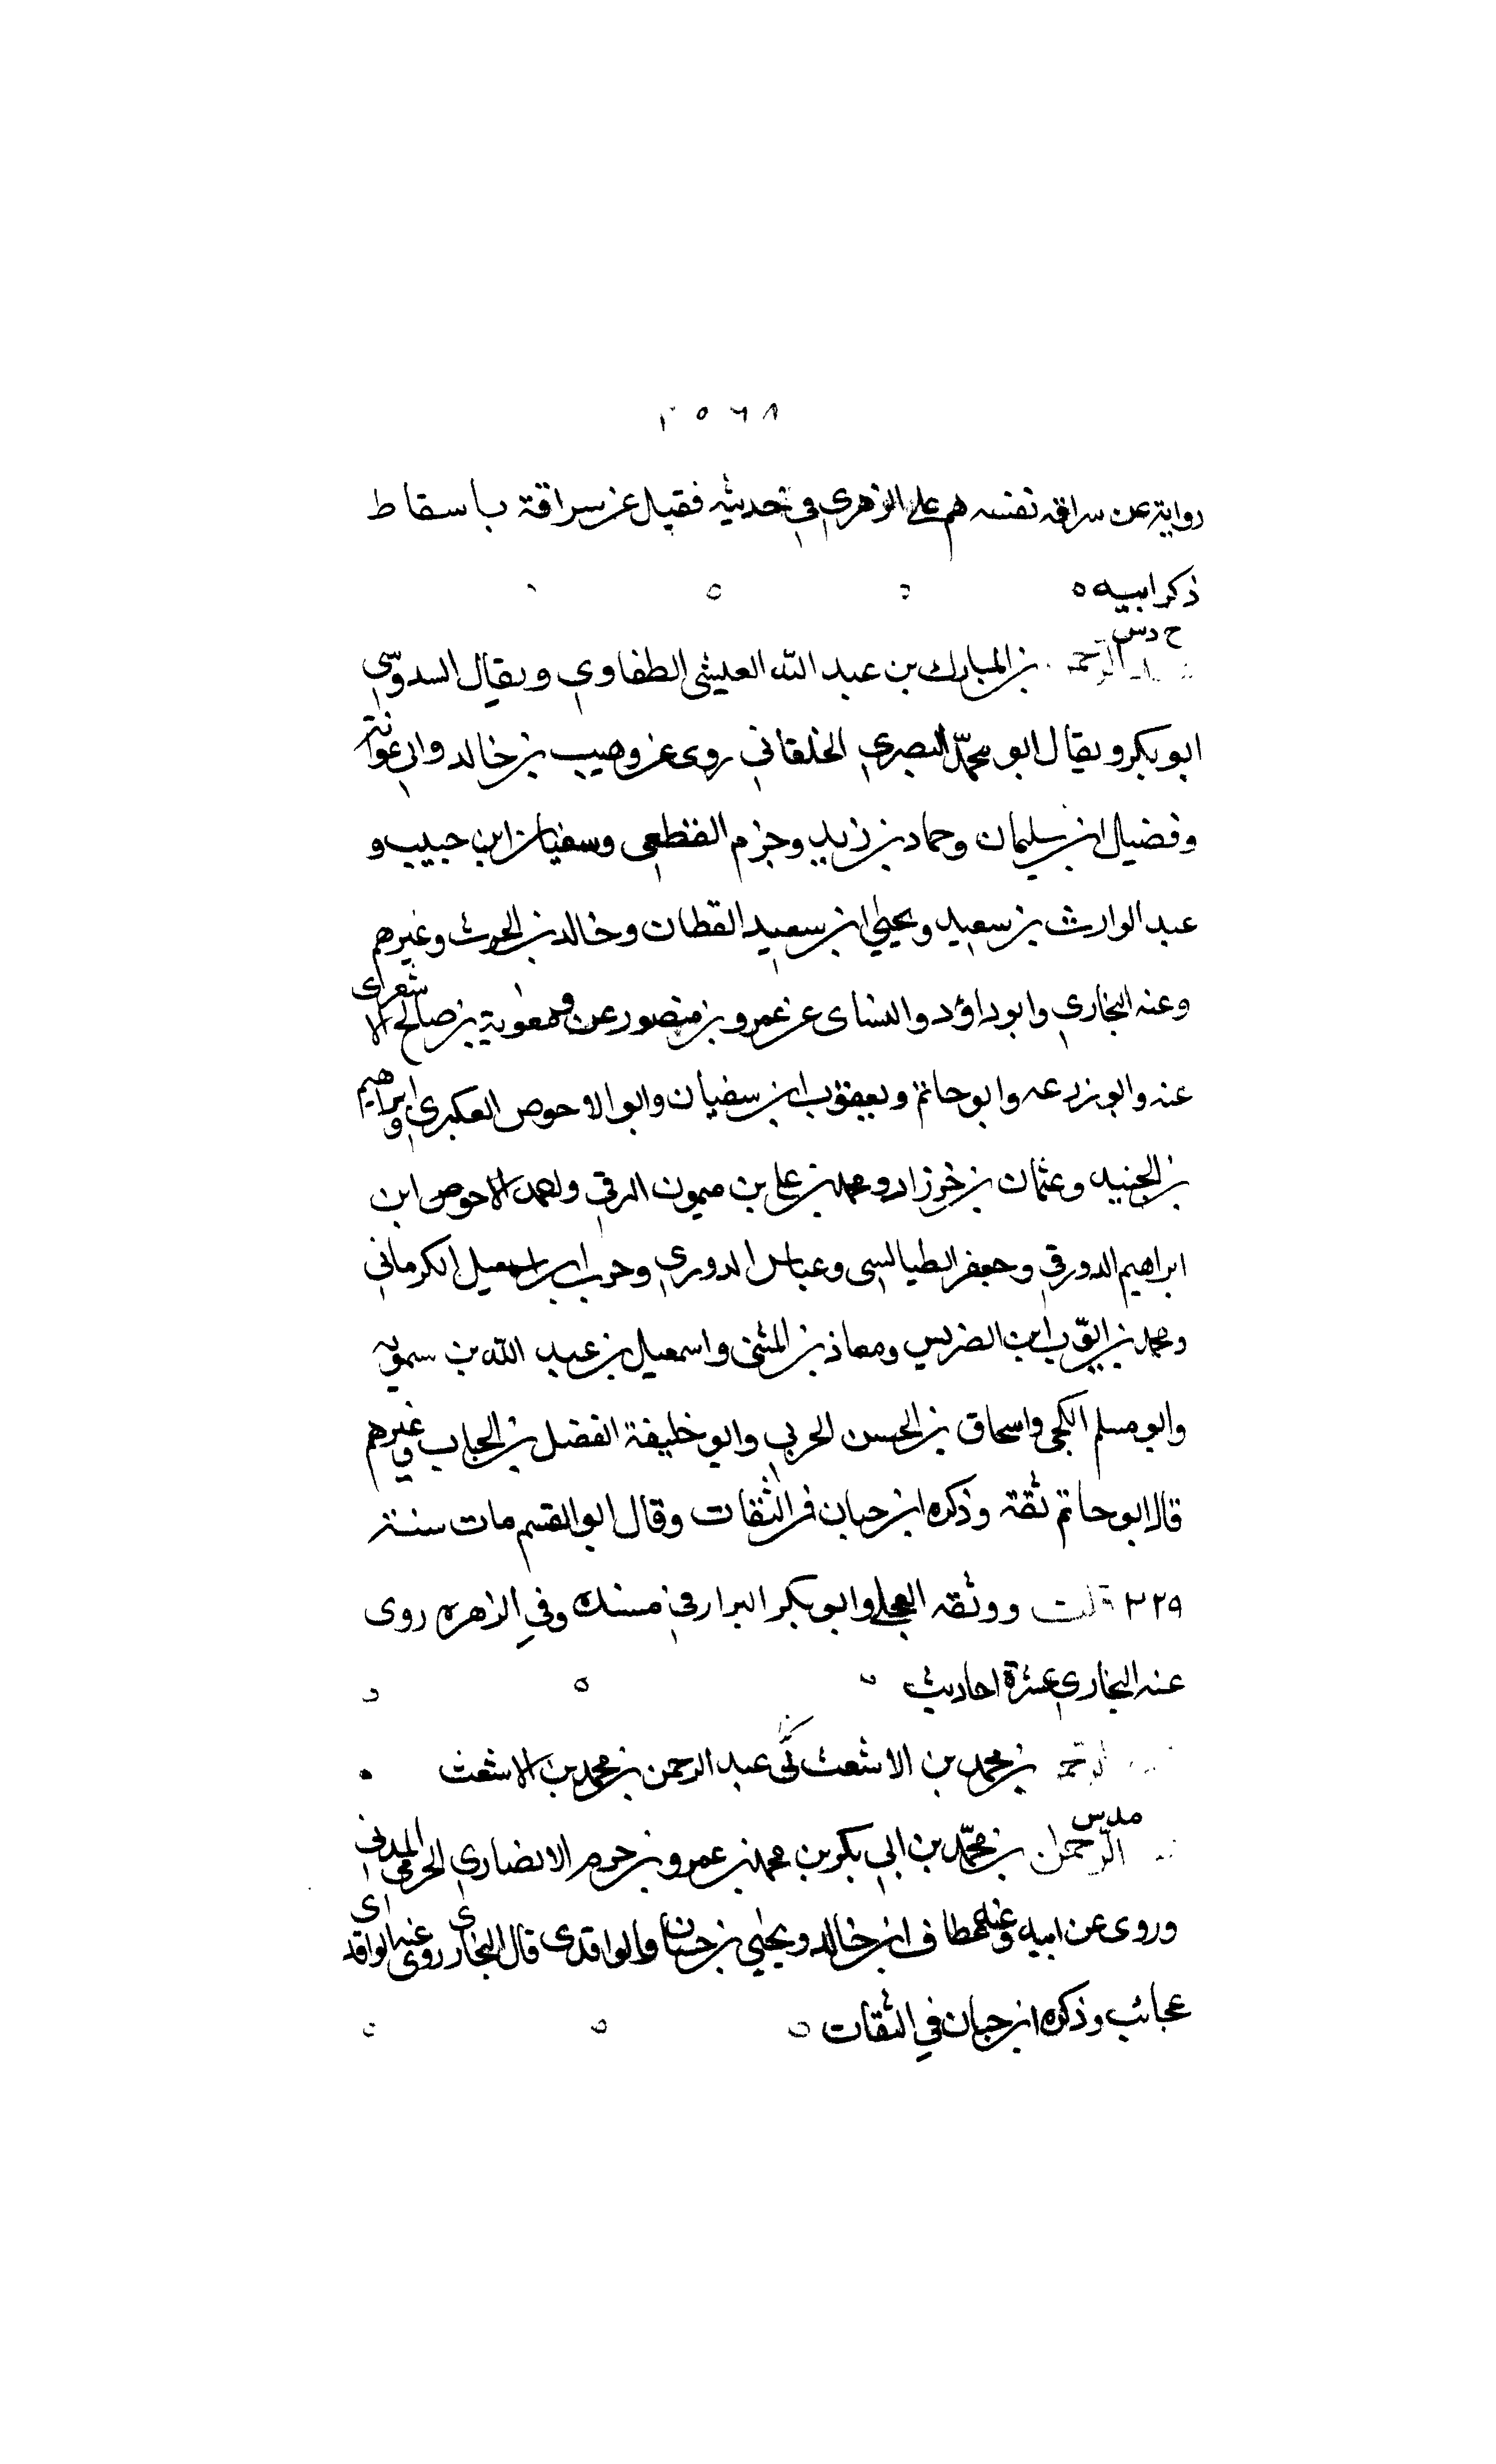 ٢٥٦٨
رواية عن سراقه نفسه هم على الزهري في حديثه فقيل عن سراقة باسقاط
ذكر ابيه ٥
خ د س
الرحمن بن المبارك بن عبد الله العيشى الطفاوي ويقال السدوسي
ابو بكر ويقال ابو محمّد البصري الخلقاني روى عن وهيب بن خالد وابى عوانة
وفضيل ابن سليمان وحماد بن زيد وحزم القطعى وسفيان ابن حبيب و
عبد الوارث بن سعيد ويحيى ابن سعيد القطان وخالد بن الحرث وغيرهم
وعنه البخاري وابو داؤد والنساى عن عمرو بن منصور عن ومعوية بن صالح الاشعرى
عنه وابو زرعه وابو حاتم ويعقوب ابن سفيان وابو الاحوص العكبري وابراهيم
بن الجنيد وعثمان بن خرزاد ومحمد بن علي بن ميمون الرقي واحمد الاحوص ابن
ابراهيم الدورقي وجعفر الطيالسى وعباس الدوري وحرب ابن اسمعيل الكرماني
ومحمد بن ايوّب ابن الضريس ومعاذ بن المثنى واسمعيل بن عبد الله بن سمويه
وابو مسلم الكجى واسحاق بن الحسن الحربي وابو خليفة الفضل بن الحباب وغيرهم
قال ابو حاتم ثقة وذكره ابن حبان في الثقات وقال ابو القسم مات سنة
٢٢٩ قلت ووثقه العجلى وابو بكر البزار في مسنده وفي الزهره روى
عنه البخاري عشرة احاديث
الرحمن بن محمد بن الاشعث في عبد الرحمن بن محمد بن الاشعث
مد س
الرّحمان بن محمّد بن ابي بكر بن محمد بن عمرو بن حزم الانصاري الحزمى المدني
وروى عن ابيه وعنه عطاف ابن خالد ويحيى بن حسان والواقدى قال البخارى روى عنه الواقدى
عجائب وذكره ابن حبان في الثقات